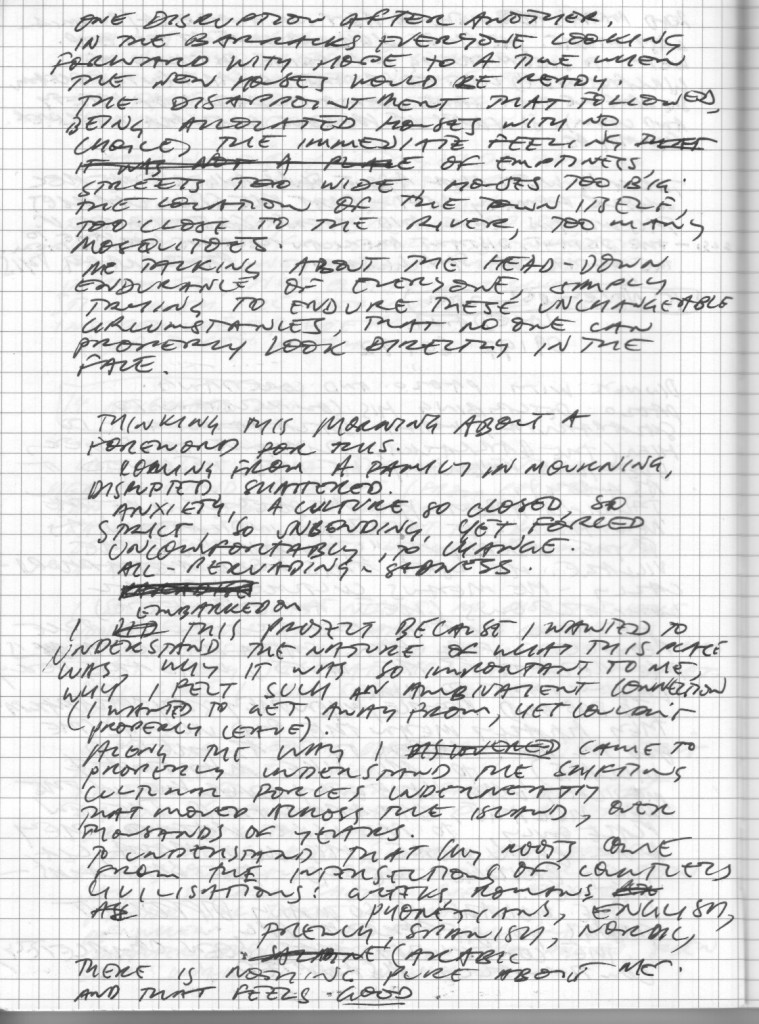 ONE DISRUPTION AFTER ANOTHER.
IN THE BARRACKS EVERYONE LOOKING
FORWARD WITH HOPE TO A TIME WHEN
THE NEW HOUSES WOULD BE READY.
THE DISAPPOINTMENT THAT FOLLOWED,
BEING ALLOCATED HOUSES WITH NO
CHOICE, THE IMMEDIATE FEELING THAT
IT WAS NOT A PLACE OF EMPTINESS,
STREETS TOO WIDE, HOUSES TOO BIG.
THE LOCATION OF THE TOWN ITSELF,
TOO CLOSE TO THE RIVER, TOO MANY
MOSQUITOES.
ME TALKING ABOUT THE HEAD-DOWN
ENDURANCE OF EVERYONE, SIMPLY
TRYING TO ENDURE THESE UNCHANGEABLE
CIRCUMSTANCES, THAT NO ONE CAN
PROPERLY LOOK DIRECTLY IN THE
FACE.
THINKING THIS MORNING ABOUT A
FOREWORD FOR THIS.
COMING FROM A FAMILY IN MOURNING,
DISRUPTED, SHATTERED.
ANXIETY, A CULTURE SO CLOSED, SO
STRICT, SO UNBENDING, YET FORCED
UNCOMFORTABLY, TO CHANGE.
ALL-PERVADING-SADNESS.
EMBARKED ON
I DID THIS PROJECT BECAUSE I WANTED TO
UNDERSTAND THE NATURE OF WHAT THIS PLACE
WAS, WHY IT WAS SO IMPORTANT TO ME,
WHY I FELT SUCH AN AMBIVALENT CONNECTION
(I WANTED TO GET AWAY FROM, YET COULDN'T
PROPERLY LEAVE).
ALONG THE WAY I DISCOVERED CAME TO
PROPERLY UNDERSTAND THE SHIFTING
CULTURAL FORCES UNDERNEATH
THAT MOVED ACROSS THE ISLAND, OVER
THOUSANDS OF YEARS.
TO UNDERSTAND THAT MY ROOTS COME
FROM THE INTERSECTIONS OF COUNTLESS
CIVILISATIONS: GREEKS, ROMANS,
PHONETIANS, ENGLISH,
FRENCH, SPANISH, NORDIC,
ARABIC
THERE IS NOTHING PURE ABOUT ME.
AND THAT FEELS GOOD.